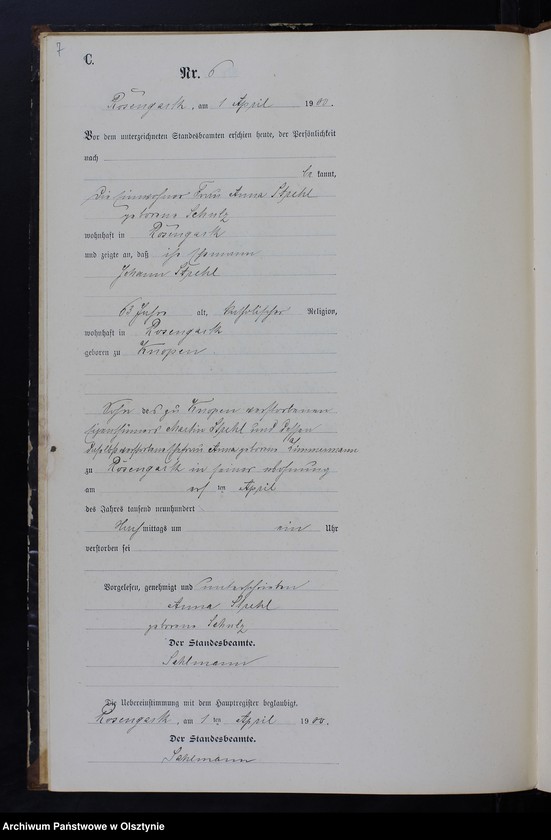 7
C.
Nr. 6
Rosengarth, am 1 April 1900.
Vor dem unterzeichneten Standesbeamten erschien heute, der Persönlichkeit
nach
be kannt,
die Einwohner Frau Anna Stpehl
geborene Schulz
wohnhaft in Rosengarth
und zeigte an, daß ihr Ehemann
Johann Stpehl
63 Jahre alt, katholischer Religion,
wohnhaft in Rosengarth
geboren zu Knopen
Sohn des zu Knopen verstorbenen
Martin Stpehl und dessen
Ehefrau Anna geborene Zimmermann
zu Rosengarth in seiner Wohnung
am ten April
des Jahres tausend neunhundert
Nachmittags um ein Uhr
verstorben sei
Vorgelesen, genehmigt und unterschrieben
Anna Stpehl
geborene Schulz
Der Standesbeamte.
Sahlmann
Die Uebereinstimmung mit dem Hauptregister beglaubigt.
Rosengarth, am 1 ten April 1900.
Der Standesbeamte.
Sahlmann
Archiwum Państwowe w Olsztynie